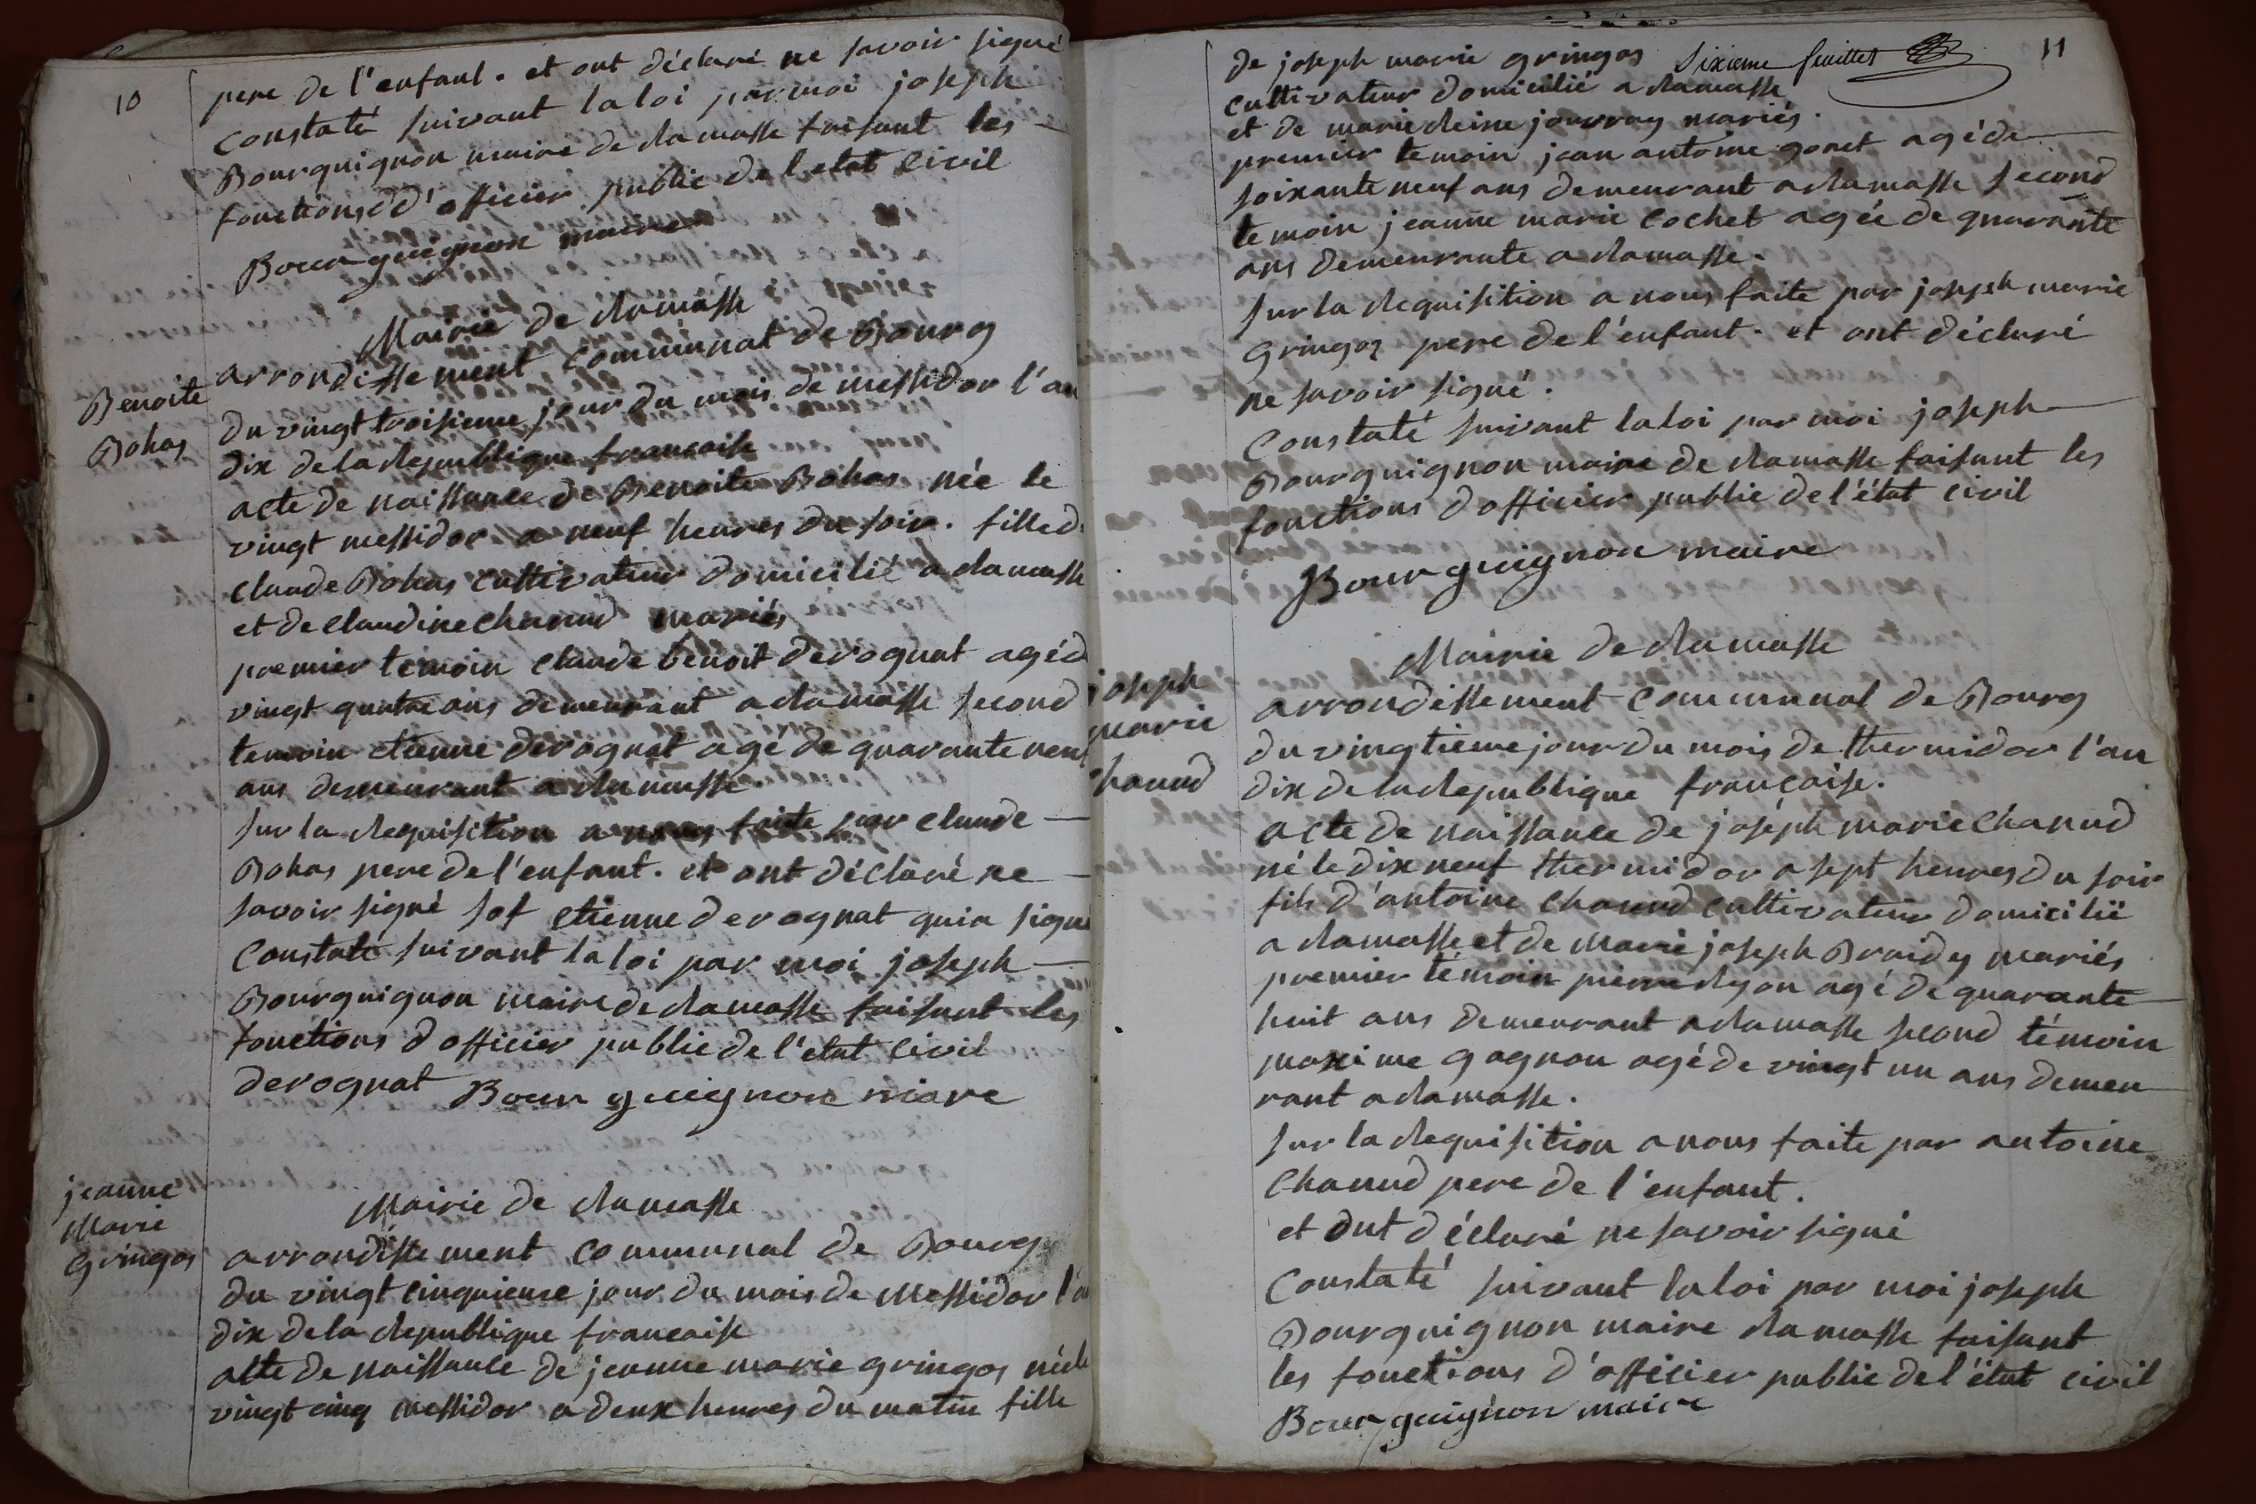 10
pere de l'enfant. et ont déclaré ne savoir signé
Constaté suivant la loi par moi joseph
Bourguignon maire de ramasse faisant les
fonctions d d'officier public de l'etat Civil
Bourguignon maire
Mairie de ramasse
arrondissement communal de Bourg
Benoite
Bohas
du vingt troisieme jour du mois de messidor l'an
dix de la republique francaise
acte de naissance de Benoite Bohas née le
vingt messidor a neuf heures du soir. fille d
claude Bohas cultivateur domicilié a ramasse
et de claudine chanud mariés
premier temoin claude benoit derognat agé d
vingt quatre ans demeurant a ramasse second
temoin etienne derognat agé de quarante neuf
ans demeurant a ramasse
sur la requisition a nous faite par claude
Bohas pere de l'enfant. et ont déclaré ne
savoir signé sof etienne derognat qui a signé
Constaté suivant la loi par moi joseph
Bourguignon maire de ramasse faisant les
fonctions d officier public de l'etat civil
derognat Bourguignon miare
jeanne
Marie
Gringoz
Mairie de ramasse
arrondissement communal de Bourg
du vingt cinquieme jour du mois de Messidor l'a
dix de la republique francaise
acte de naissance de jeanne marie gringoz née le
vingt cinq messidor a deux heures du matin fille
Sixieme feuillet
11
de joseph marie gringoz
cultivateur domicilié a ramasse
et de marie reine jouvray mariés.
premier temoin jean antoine goret agé de
soixante neuf ans demeurant a ramasse second
temoin jeanne marie cochet agée de quarante
ans demeurante a ramasse.
sur la requisition a nous faite par joseph marie
Gringoz pere de l'enfant. et ont déclaré
ne savoir signé.
Constaté suivant la loi par moi joseph
Bourguignon maire de ramasse faisant les
fonctions d officier public de l'état civil
Bourguignon maire
Mairie de ramasse
joseph
marie
chanud
arrondissement communal de Bourg
du vingtieme jour du mois de thermidor l'an
dix de la republique française.
acte de naissance de joséph marie Chanud
né le dix neuf thermidor a sept heures du soir
fils d'antoine Chanud cultivateur domicilié
a ramasse et de marie joseph Braidy mariés
premier témoin pierre ryon agé de quarante
huit ans demeurant a ramasse second témoin
maxime gagnon agé de vingt un ans demeu
rant a ramasse.
sur la requisition a nous faite par antoine
Chanud pere de l'enfant.
et ont déclaré ne savoir signé
Constaté suivant la loi par moi joseph
Bourguignon maire ramasse faisant
les fonctions d'officier public de l'état civil
Bourguignon maire